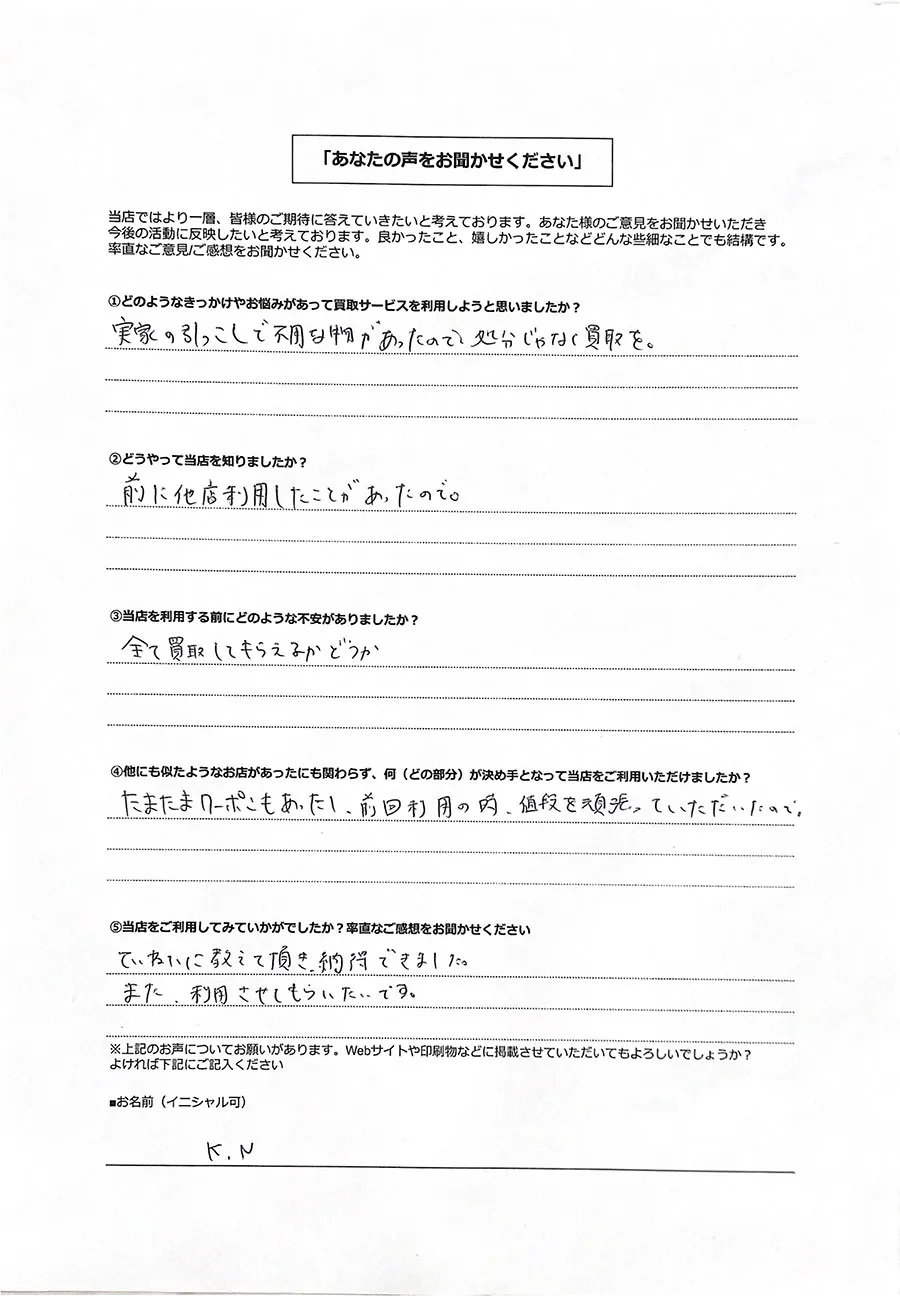 「あなたの声をお聞かせください」
当店ではより一層、皆様のご期待に答えていきたいと考えております。あなた様のご意見をお聞かせいただき
今後の活動に反映したいと考えております。良かったこと、嬉しかったことなどどんな些細なことでも結構です。
率直なご意見/ご感想をお聞かせください。
①どのようなきっかけやお悩みがあって買取サービスを利用しようと思いましたか？
実家の引っこしで不用な物があったので、処分じゃなく買取を。
②どうやって当店を知りましたか？
前に他店利用したことがあったので。
③当店を利用する前にどのような不安がありましたか？
全て買取してもらえるかどうか
④他にも似たようなお店があったにも関わらず、何（どの部分）が決め手となって当店をご利用いただけましたか？
たまたまクーポンもあったし、前回利用の内、値段を頑張っていただいたので。
⑤当店をご利用してみていかがでしたか？率直なご感想をお聞かせください
ていねいに教えて頂き、納得できました。
また、利用させてもらいたいです。
※上記のお声についてお願いがあります。Webサイトや印刷物などに掲載させていただいてもよろしいでしょうか？
よければ下記にご記入ください
■お名前（イニシャル可）
K.N